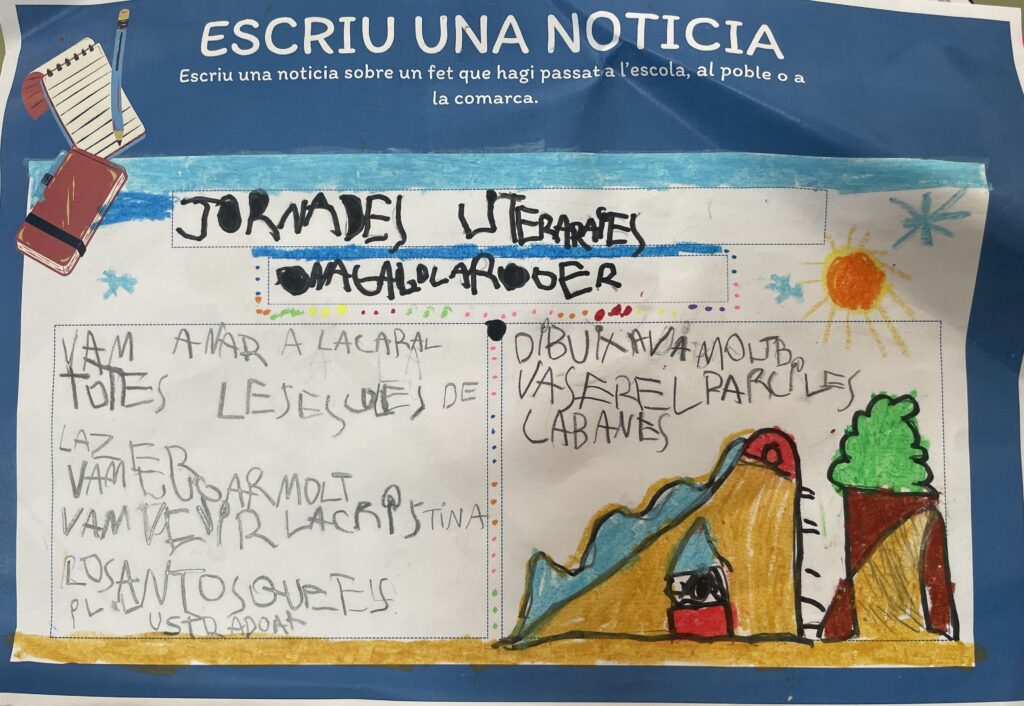 ESCRIU UNA NOTICIA
Escriu una noticia sobre un fet que hagi passat a l'escola, al poble o a
la comarca.
JORNADES LITERARIES
VAM ANAR A LACARAL
TOTES LESESCOLES DE
LAZER
VAM MOLT
VAM VENIR LACRISTINA
LOSANTOSQUEES
DIBUIXAVAMOLTB
VASEREL PARC LES
CABANES